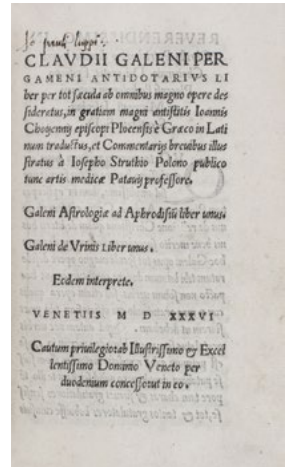 CLAVDII GALENI PER
GAMENI ANTIDOTARIVS LI
ber per tot sæcula ab omnibus magno opere des
sideratus, in gratiam magni antistitis Ioannis
Choyennij episcopi Plocensis è Græco in Lati
num traductus, et Commentarijs breuibus illus
stratus à Iosepho Struthio Polono publico
tunc artis medicæ Patauij professore.
Galeni Astrologiæ ad Aphrodisiũ liber unus.
Galeni de Vrinis Liber unus.
Eodem interprete.
VENETIIS M D XXXVI
Cautum priuilegio ab Illustrissimo & Excel
lentissimo Dominio Veneto per
duodenium concesso ut in eo.